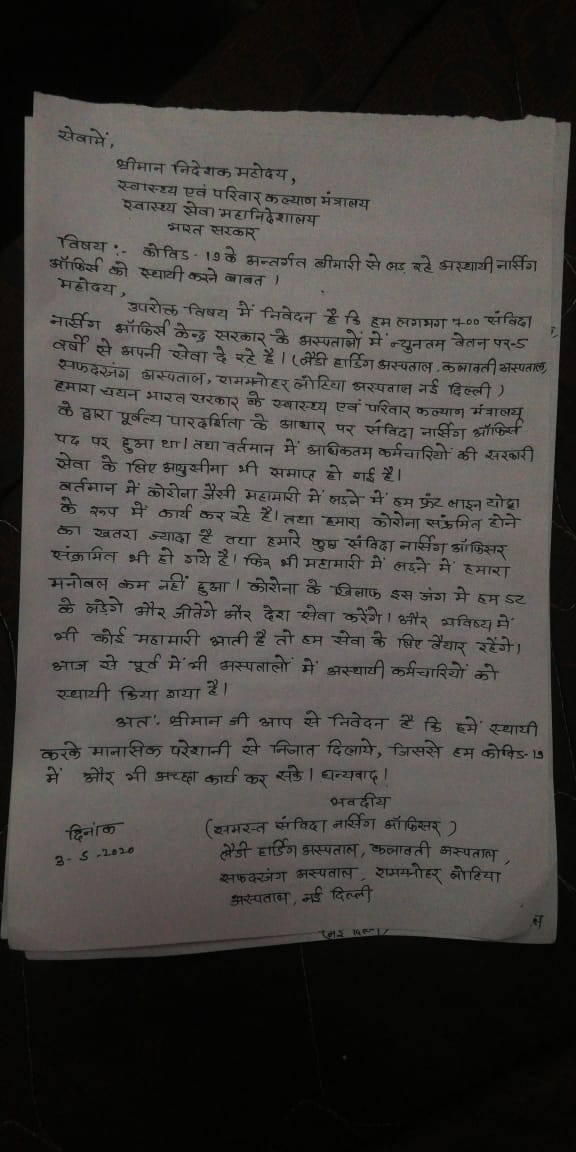 सेवामें,
श्रीमान निदेशक महोदय,
स्वास्थ्य एवं परिवार कल्याण मंत्रालय
स्वास्थ्य सेवा महानिदेशालय
भारत सरकार
विषय :- कोविड-19 के अन्तर्गत बीमारी से लड़ रहे अस्थायी नार्सिंग
ऑफिर्स को स्थायी करने बाबत ।
महोदय,
उपरोक्त विषय में निवेदन है कि हम लगभग 700 संविदा
नार्सिंग ऑफिर्स केन्द्र सरकार के अस्पतालों में न्युनतम वेतन पर-5
वर्षो से अपनी सेवा दे रहे है। (लेडी हार्डिंग अस्पताल, कलावती अस्पताल,
सफदरजंग अस्पताल, राममनोहर लोहिया अस्पताल नई दिल्ली)
हमारा चयन भारत सरकार के स्वास्थ्य एवं परिवार कल्याण मंत्रालय
के द्वारा पूर्वत्य पारदर्शिता के आधार पर संविदा नार्सिंग ऑफिर्स
पद पर हुआ था। तथा वर्तमान में अधिकतम कर्मचारियों की सरकारी
सेवा के लिए आयुसीमा भी समाप्त हो गई है।
वर्तमान में कोरोना जैसी महामारी में लड़ने में हम फ्रंट लाइन योद्वा
के रूप में कार्य कर रहे है। तथा हमारा कोरोना संक्रमित होने
का खतरा ज्यादा है तथा हमारे कुछ संविदा नार्सिंग ऑफिसर
संक्रामित भी हो गये है। फिर भी महामारी में लड़ने में हमारा
मनोबल कम नहीं हुआ । कोरोना के खिलाफ इस जंग में हम डट
के लड़ेगे और जीतेगे और देश सेवा करेंगे। और भविष्य में
भी कोई महामारी आती है तो हम सेवा के लिए तैयार रहेंगे।
आज से पूर्व में भी अस्पतालों में अस्थायी कर्मचारियों को
स्थायी किया गया है।
अतः श्रीमान जी आप से निवेदन है कि हमें स्थायी
करके मानासिक परेशानी से निजात दिलाये, जिससे हम कोविड-19
में और भी अच्छा कार्य कर सके । धन्यवाद।
भवदीय
दिनांक (समस्त संविदा नार्सिंग ऑफिसर)
3-5-2020 लेडी हार्डिंग अस्पताल, कलावती अस्पताल,
सफदरजंग अस्पताल, राममनोहर लोहिया
अस्पताल, नई दिल्ली